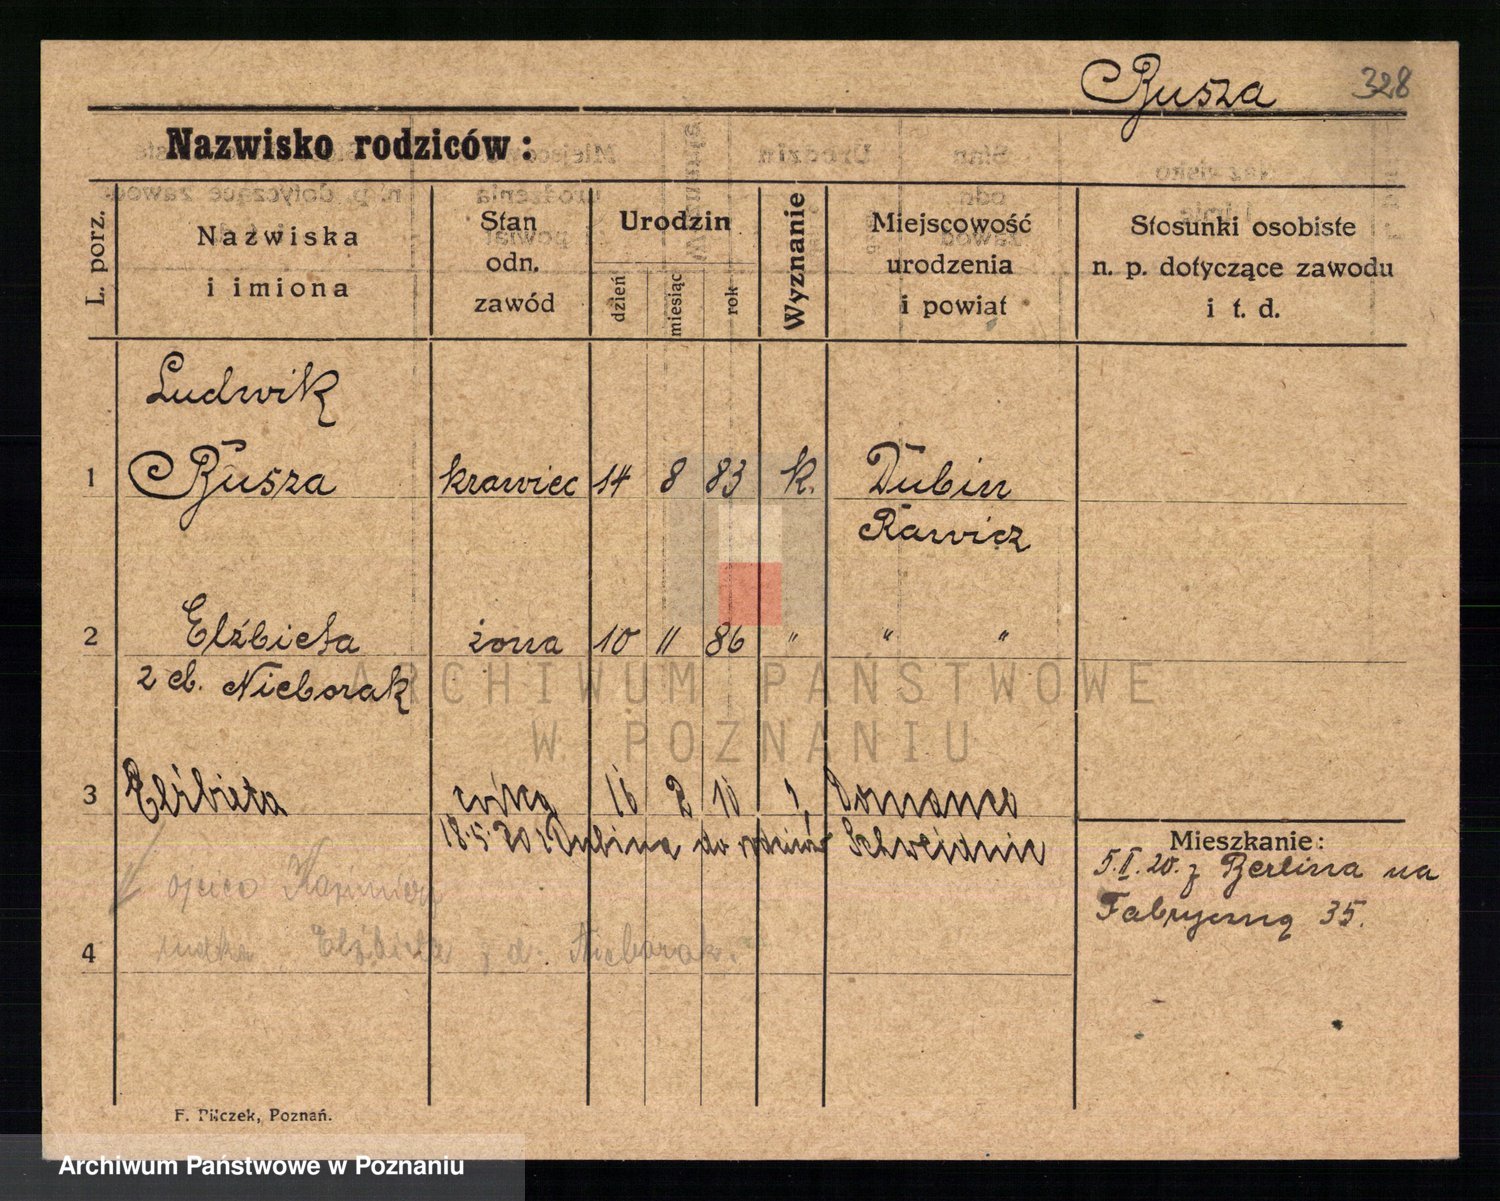 Rusza 328
Nazwisko rodziców:
L. porz.
Nazwiska
i imiona
Stan
odn.
zawód
Urodzin
dzień
miesiąc
rok
Wyznanie
Miejscowość
urodzenia
i powiat
Stosunki osobiste
n. p. dotyczące zawodu
i t. d.
Ludwik
1 Rusza krawiec 14 8 83 k. Dubin
Rawicz
2 Elżbieta żona 10 11 86 " " "
z d. Nieborak
3 Elżbieta córka 16 2 10
18.5.20 z Dubina do rodziców Schweidnic
Mieszkanie:
5.II.20. z Berlina na
Fabryczną 35.
ojciec Kazimierz
4 matka Elżbieta z d. Nieborak.
F. Pilczek, Poznań.
ARCHIWUM PAŃSTWOWE
W POZNANIU
Archiwum Państwowe w Poznaniu